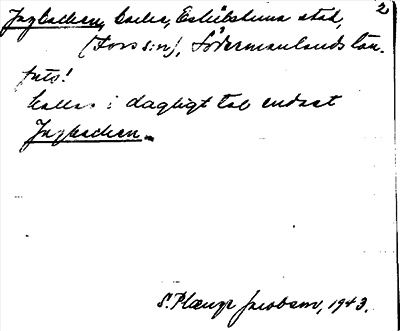 2
Jagbacken, backe, Eskilstuna stad,
(Fors s:n), Södermanlands län.
fuls!
kallas i dagligt tal endast
Jagbacken.
S. Plænge Jacobson, 1943.